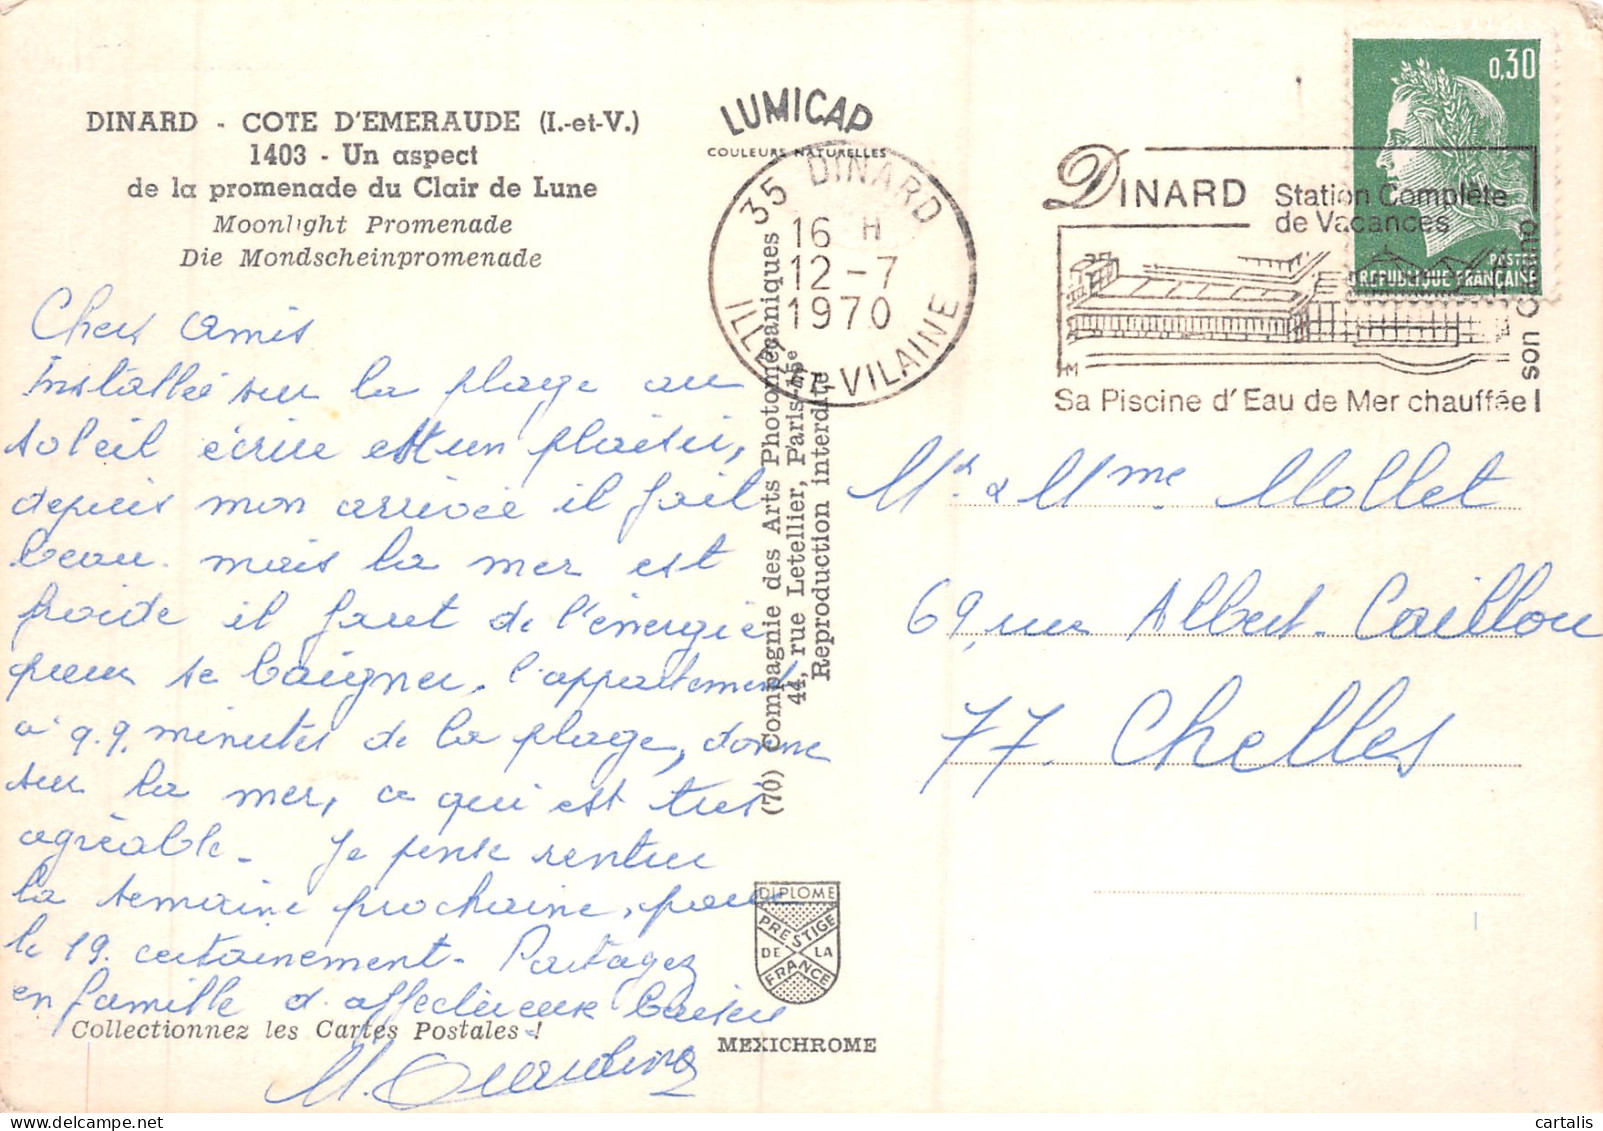 DINARD - COTE D'EMERAUDE (I.-et-V.)
1403 - Un aspect
de la promenade du Clair de Lune
Moonlight Promenade
Die Mondscheinpromenade
Chers amis
Installée sur la plage au
soleil écrire est un plaisir,
depuis mon arrivée il fait
beau. mais la mer est
froide il faut de l'énergie
pour se baigner. l'appartement
à q.q. minutes de la plage, donne
sur la mer, ce qui est très
agréable. Je pense rentrer
la semaine prochaine, pour
le 19. certainement - Partagez
en famille d'affectueux baisers
Collectionnez les Cartes Postales !
LUMICAP
COULEURS NATURELLES
35 DINARD
16 H
12-7
1970
ILLE ET VILAINE
(70) Compagnie des Arts Photomécaniques
44, rue Letellier, Paris-15e
Reproduction interdite
DIPLOME
PRESTIGE
DE LA
FRANCE
MEXICHROME
0,30
POSTES
REPUBLIQUE FRANÇAISE
DINARD Station Complète
de Vacances
son Casino
HM
Sa Piscine d'Eau de Mer chauffée !
Mr & Mme Mollet
69, rue Albert Caillou
77. Chelles
cartalis